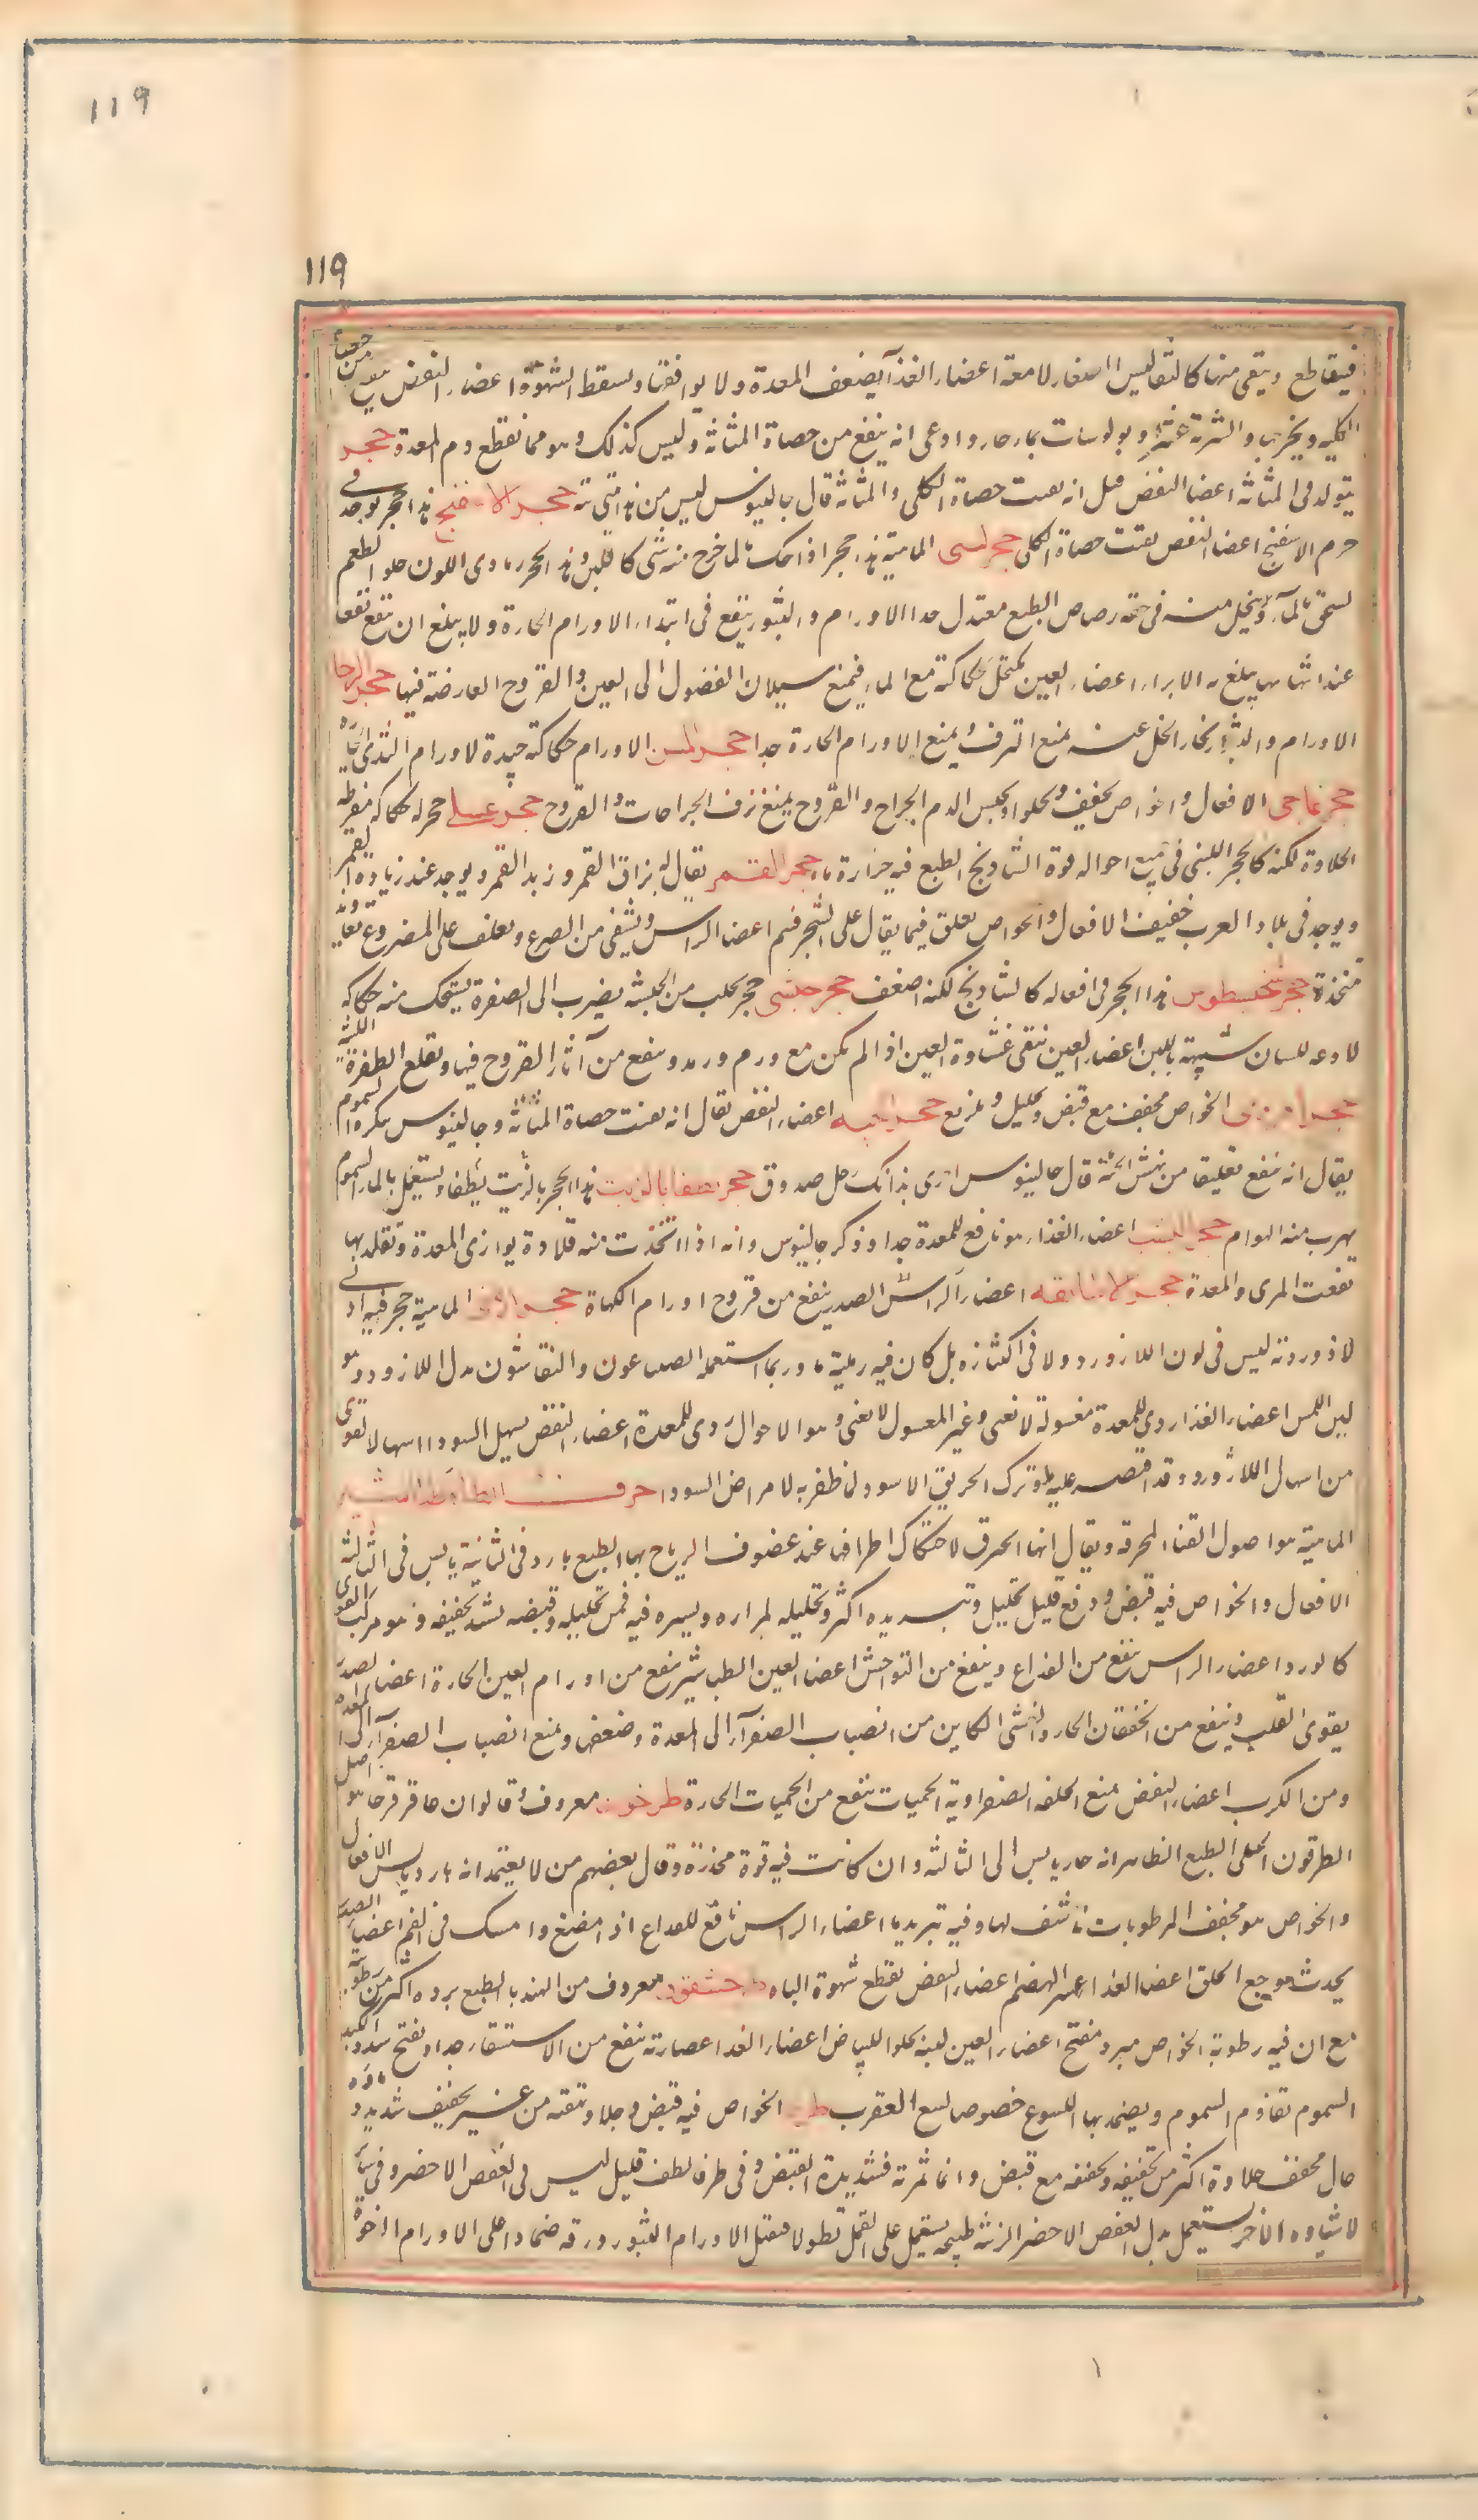 119
119
فيقاطع ويبقى منها كالثقاليس اصغار لامعة اعضاء الغذآ يضعف المعدة ولا يوافقها ويسقط الشهوة اعضاء النفض من حصاة
الكليه ويخرجها والشربة عشرة وبولوسات بماء حار وادعى انه ينفع من حصاة المثانة وليس كذلك وهو مما يقطع دم المعدة حجر
يتولد فى المثانة اعضا النفض قيل انه يفتت حصاة الكلى والمثانة قال جالينوس ليس من هذا شى حجر الاسفنج هذا حجر يوجد فى
جرم الاسفنج اعضا النفض يفتت حصاة الكلى حجر لبنى الماهية هذا حجر اذا حك بالماء خرج منه شى كاللبن وهذا الحجر رمادى اللون حلو الطعم
يسحق بالمآء ويجعل منه فى حقة رصاص الطبع معتدل جدا الاورام والبثور ينفع فى ابتداء الاورام الحارة ولا يبلغ ان ينفع نفعا
عند انتهائها يبلغ به الابراء اعضاء العين يكتحل بحكاكته مع الماء فيمنع سيلان الفضول الى العين والقروح العارضة فيها حجر الرحا
الاورام والبثور بخار الخل عنه يمنع النزف ويمنع الاورام الحارة جدا حجر المسن الاورام حكاكته جيدة لاورام الثدى الحارة
حجر عاجى الافعال والخواص يجفف ويجلو ويحبس الدم الجراح والقروح يمنع نزف الجراحات والقروح حجر عسلى حجر له حكاكه مفرطه
الحلاوة لكنه كالحجر اللبنى فى جميع احواله قوة الشاذنج الطبع فيه حرارة ما حجر القمر يقال له بزاق القمر وزبد القمر ويوجد عند زياده القمر
ويوجد فى بلاد العرب خفيف الافعال والخواص يعلق فيما يقال على الشجر فيثمر اعضا الراس ويشفى من الصرع ويعلق على المصروع
متخذة حجر هذا الحجر فى افعاله كالشاذنج لكنه اضعف حجر حبشى حجر يجلب من الحبشه يضرب الى الصفرة يستحك منه حكاكه
لاذعه للسان شبيهة باللبن اعضاء العين ينقى غشاوة العين اذا لم يكن مع ورم ورمد وينفع من آثار القروح فيها ويقلع الظفرة اللينة
حجر الخواص مجفف مع قبض وتحليل وتلذيع حجر الحيه اعضاء النفض يقال انه يفتت حصاة المثانة وجالينوس ينكره السموم
يقال انه ينفع تعليقا من نهش الحية قال جالينوس اخبرنى بذلك رجل صدوق حجر يطفا بالزيت هذا الحجر بالزيت يطفا ويشتعل بالماء السموم
يهرب منه الهوام حجر اليشب اعضاء الغذاء هو نافع للمعدة جدا وذكر جالينوس وانه اذا اتخذت منه قلادة يوازى المعدة وتقلد بها
نفعت المرى والمعدة حجر الاساكفه اعضاء الراس الصدر ينفع من قروح اورام اللهاة حجر ارمنى الماهية حجر فيه ادنى
لازوردية ليس فى لون اللازورد ولا فى اكتنازه بل كان فيه رملية ما وربما استعمله الصباغون والنقاشون بدل اللازورد وهو
لين اللمس اعضاء الغذاء ردى للمعدة مغسولة لا يغثى وغير المغسول لا يغثى وهو الاحوال ردى للمعدة اعضاء النفض يسهل السودا اسهالا اقوى
من اسهال اللازورد وقد اقتصر عليه وترك الخربق الاسود لما ظفر به لامراض السودا حرف الطاء طباشير
الماهية هو اصول القنا المحرقة ويقال انها تحرق لاحتكاك اطرافها عند عصوف الرياح بها الطبع بارد فى الثانية يابس فى الثالثة
الافعال والخواص فيه قبض ودفع قليل تحليل وتبريده اكثر وتحليله لمراره ويسيره فيه فمن تحليله وقبضه يشتد تجفيفه وهو مركب القوى
كالورد اعضاء الراس ينفع من القلاع وينفع من التوحش اعضا العين الطباشير ينفع من اورام العين الحارة اعضاء الصدر
يقوى القلب وينفع من الخفقان الحار والغشى الكاين من انصباب الصفرآء الى المعدة وضعفها ويمنع انصباب الصفرآء الى المعدة
ومن الكرب اعضاء النفض يمنع الخلفه الصفراوية الحميات ينفع من الحميات الحارة طرخون معروف وقالوا ان عاقر قرحا هو اصل
الطرخون الجبلى الطبع الظاهر انه حار يابس الى الثالثه وان كانت فيه قوة مخدرة وقال بعضهم من لا يعتمد انه بارد يابس الافعال
والخواص هو مجفف الرطوبات ناشف لها وفيه تبريد ما اعضاء الراس نافع للقلاع اذا مضغ وامسك فى الفم اعضاء الصدر
يحدث وجع الحلق اعضا الغذاء عسر الهضم اعضاء النفض يقطع شهوة الباه طرخشقوق معروف من الهندبا الطبع برده اكثر من رطوبته
مع ان فيه رطوبة الخواص مبرد مفتح اعضاء العين لبنه يجلو البياض اعضاء الغذا عصارته ينفع من الاستسقاء جدا ويفتح سدد الكبد
السموم يقاوم السموم ويضمد بها اللسوع خصوصا لسع العقرب الخواص فيه قبض وجلا وتنقية من غير تجفيف شديد وماؤه
حال مجفف جلاوه اكثر من تجفيفه وتجفيفه مع قبض واما ثمرته فشديدة القبض وفى طرفا لطف قليل ليس فى العفص الاخضر وفى ساير
لاشياوه الاخر يستعمل بدل العفص الاخضر الزينة طبيخه يستعمل على القمل نطولا فيقتل الاورام البثور ورقه ضمادا على الاورام الرخوة